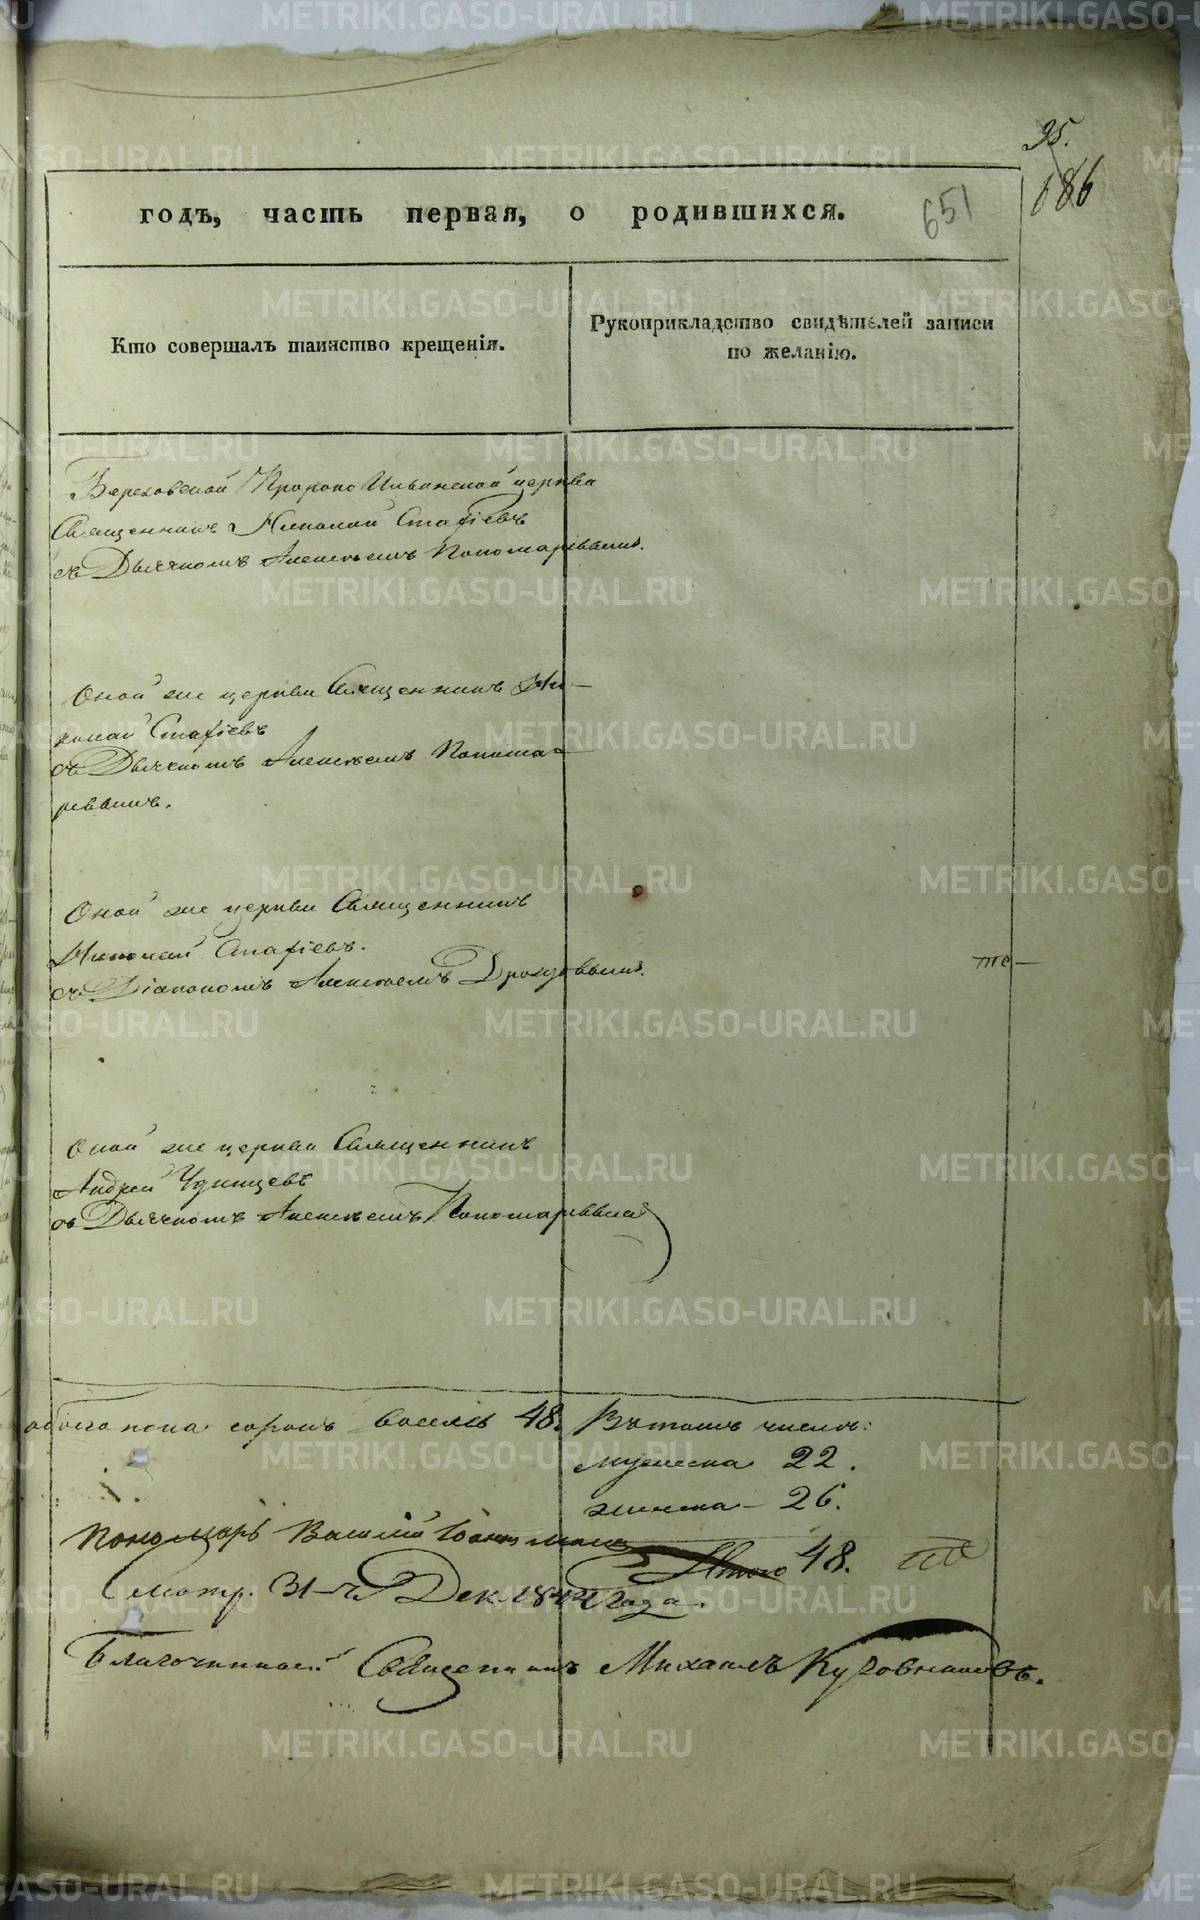 95.
686
годъ, часть первая, о родившихся.
651
Кто совершалъ таинство крещенія.
Рукоприкладство свидѣтелей записи
по желанію.
Пророко Ильинской церкви
Священникъ Николай Стафіевъ
съ Дьячкомъ Алексѣемъ Пономаревымъ.
Оной же церкви Священникъ Ни-
колай Стафіевъ
съ Дьячкомъ Алексѣемъ Понома-
ревымъ.
Оной же церкви Священникъ
Николай Стафіевъ.
съ Діакономъ Алексѣемъ Дроздовымъ.
те-
Оной же церкви Священникъ
Андрей
съ Дьячкомъ Алексѣемъ Пономаревымъ
обоего пола сорокъ восемь 48.
Въ томъ числѣ:
мужеска 22.
женска - 26.
Пономарь Василій
Итого 48.
Смотр. 31-го Дек. 1844 Года.
Благочинный Священникъ Михаилъ
METRIKI.GASO-URAL.RU